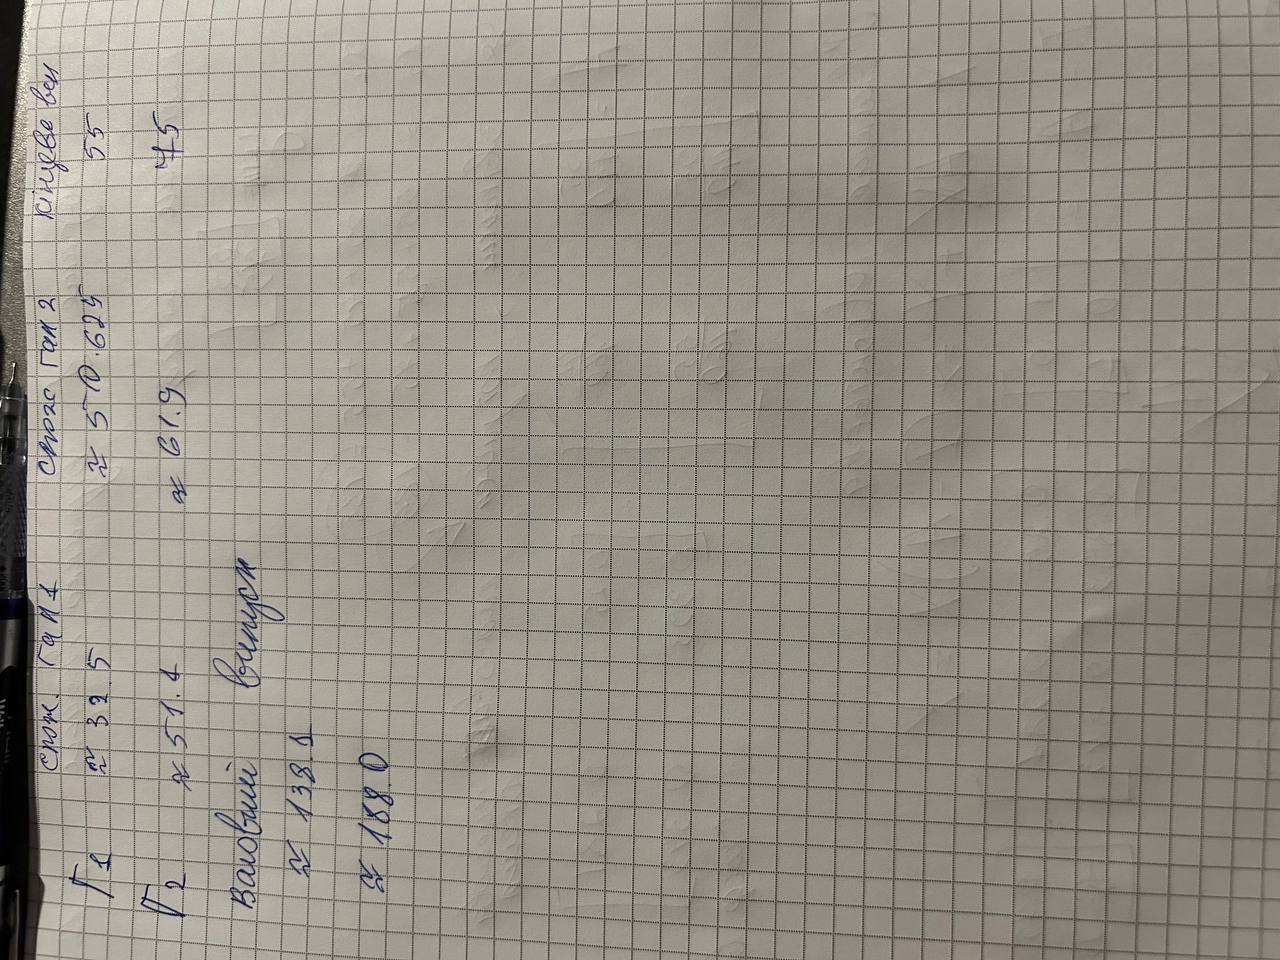 спож. гал 1 спож гал 2 кінцеве вен
Г1 ≈ 32.5 ≈ 50.625 55
Г2 ≈ 51.1 ≈ 61.9 75
Валовий випуск
≈ 138.1
≈ 188.0